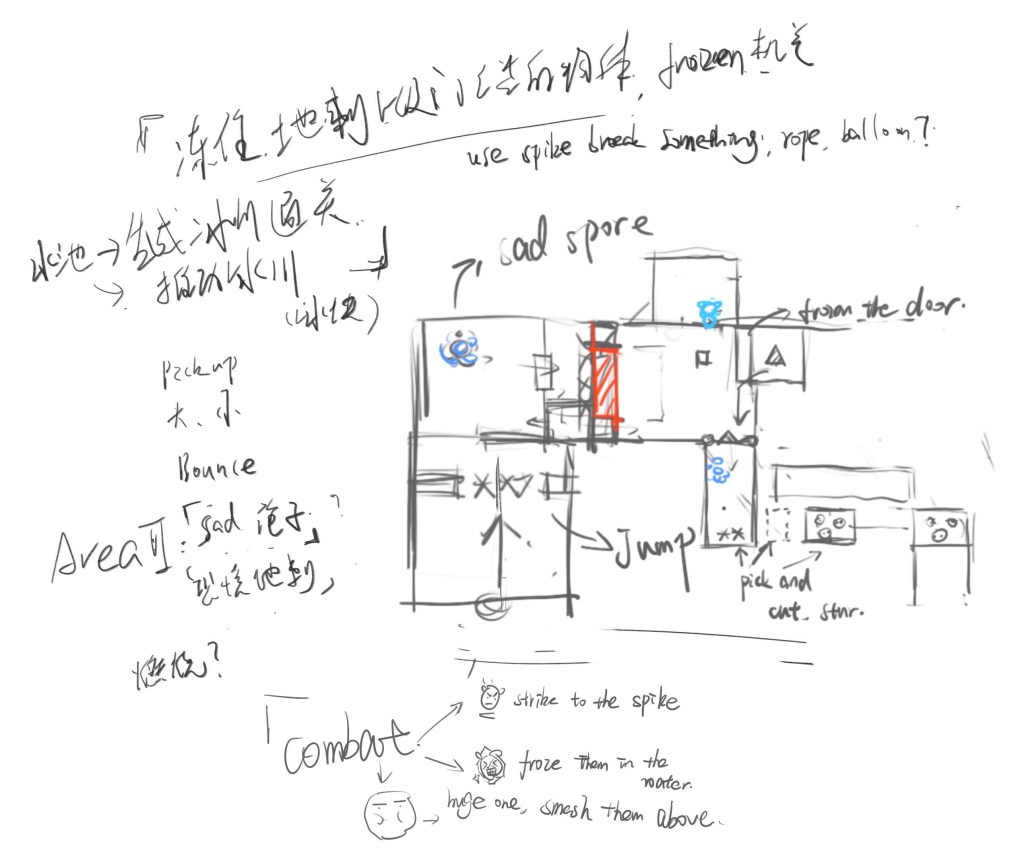 「冻住地刺以及门任意的物体, frozen机关
use spike break something, rope, balloon?
水池→生成冰川通关.
→推动冰川」
(冰块)
sad spore
frozen the door.
Pick up
大、小
Bounce
Area II:「sad 孢子」?
「恐惧地刺」
Jump
pick and
cut star.
燃烧?
「Combat
strike to the spike
froze them in the
water.
huge one, smash them above.